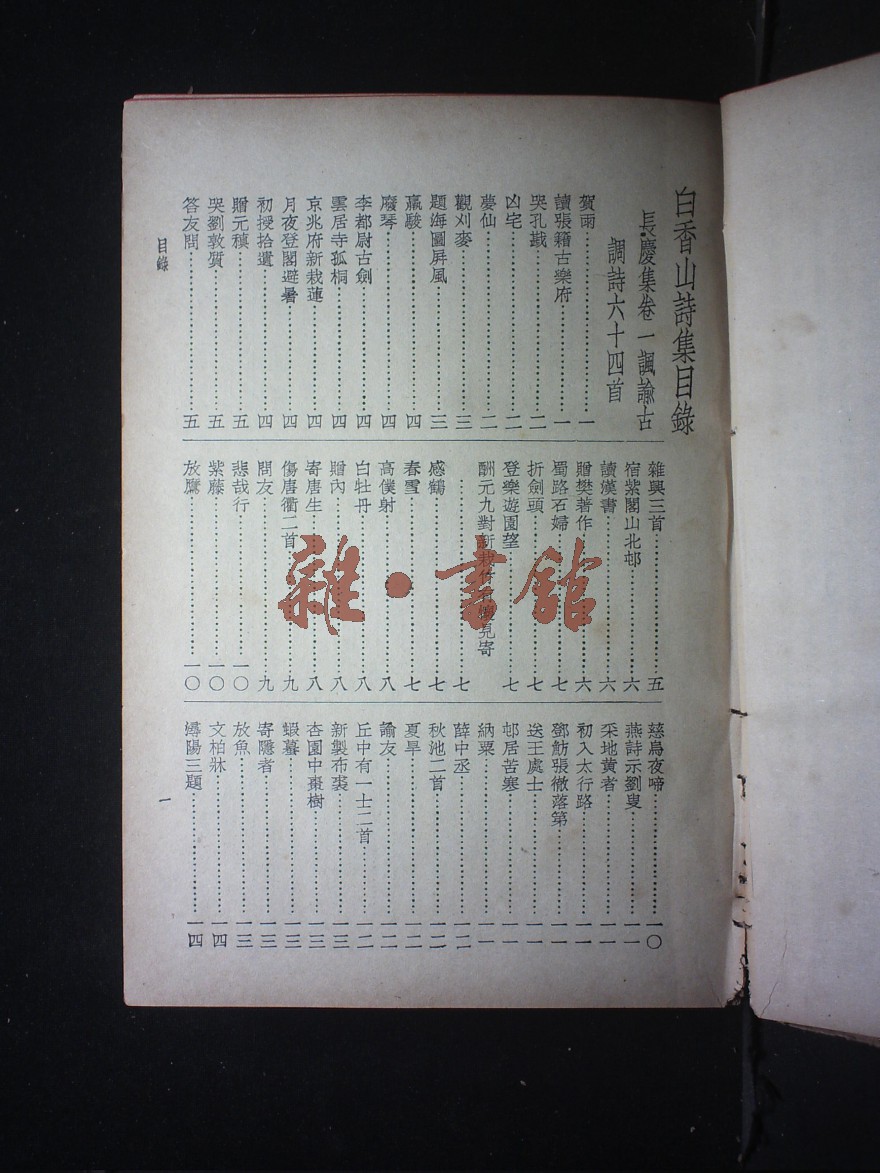 白香山詩集目錄
長慶集卷一諷諭古
調詩六十四首
賀雨⋯⋯一
讀張籍古樂府⋯⋯一
哭孔戡⋯⋯二
凶宅⋯⋯二
夢仙⋯⋯二
觀刈麥⋯⋯三
題海圖屏風⋯⋯三
羸駿⋯⋯四
廢琴⋯⋯四
李都尉古劍⋯⋯四
雲居寺孤桐⋯⋯四
京兆府新栽蓮⋯⋯四
月夜登閣避暑⋯⋯四
初授拾遺⋯⋯四
贈元稹⋯⋯五
哭劉敦質⋯⋯五
答友問⋯⋯五
雜興三首⋯⋯五
宿紫閣山北邨⋯⋯六
讀漢書⋯⋯六
贈樊著作⋯⋯六
蜀路石婦⋯⋯七
折劍頭⋯⋯七
登樂遊園望⋯⋯七
酬元九對新栽竹有懷見寄
⋯⋯七
感鶴⋯⋯七
春雪⋯⋯七
高僕射⋯⋯八
白牡丹⋯⋯八
贈內⋯⋯八
寄唐生⋯⋯八
傷唐衢二首⋯⋯九
問友⋯⋯九
悲哉行⋯⋯一〇
紫藤⋯⋯一〇
放鷹⋯⋯一〇
慈烏夜啼⋯⋯一〇
燕詩示劉叟⋯⋯一一
采地黄者⋯⋯一一
初入太行路⋯⋯一一
鄧魴張徹落第⋯⋯一一
送王處士⋯⋯一一
邨居苦寒⋯⋯一一
納粟⋯⋯一一
薛中丞⋯⋯一二
秋池二首⋯⋯一二
夏旱⋯⋯一二
諭友⋯⋯一二
丘中有一士二首⋯⋯一二
新製布裘⋯⋯一三
杏園中棗樹⋯⋯一三
蝦蟇⋯⋯一三
寄隱者⋯⋯一三
放魚⋯⋯一三
文柏牀⋯⋯一四
潯陽三題⋯⋯一四
目錄
一
雜·書館